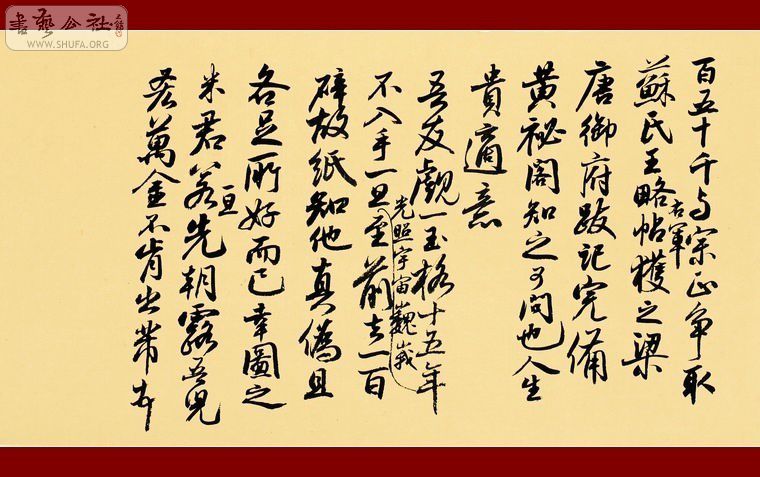 書藝公社
WWW.SHUFA.ORG
百五十千与宗正争取
蘇氏王略帖右軍獲之梁
唐御府跋記完備
黃祕閣知之可問也人生
貴適意
吾友覷一玉格十五年
光照宇宙巍峩
不入手一旦至前去一百
碎故紙知他真偽且
各足所好而已幸圖之
米君若一旦先朝露吾兒
吝萬金不肯出芾頓首